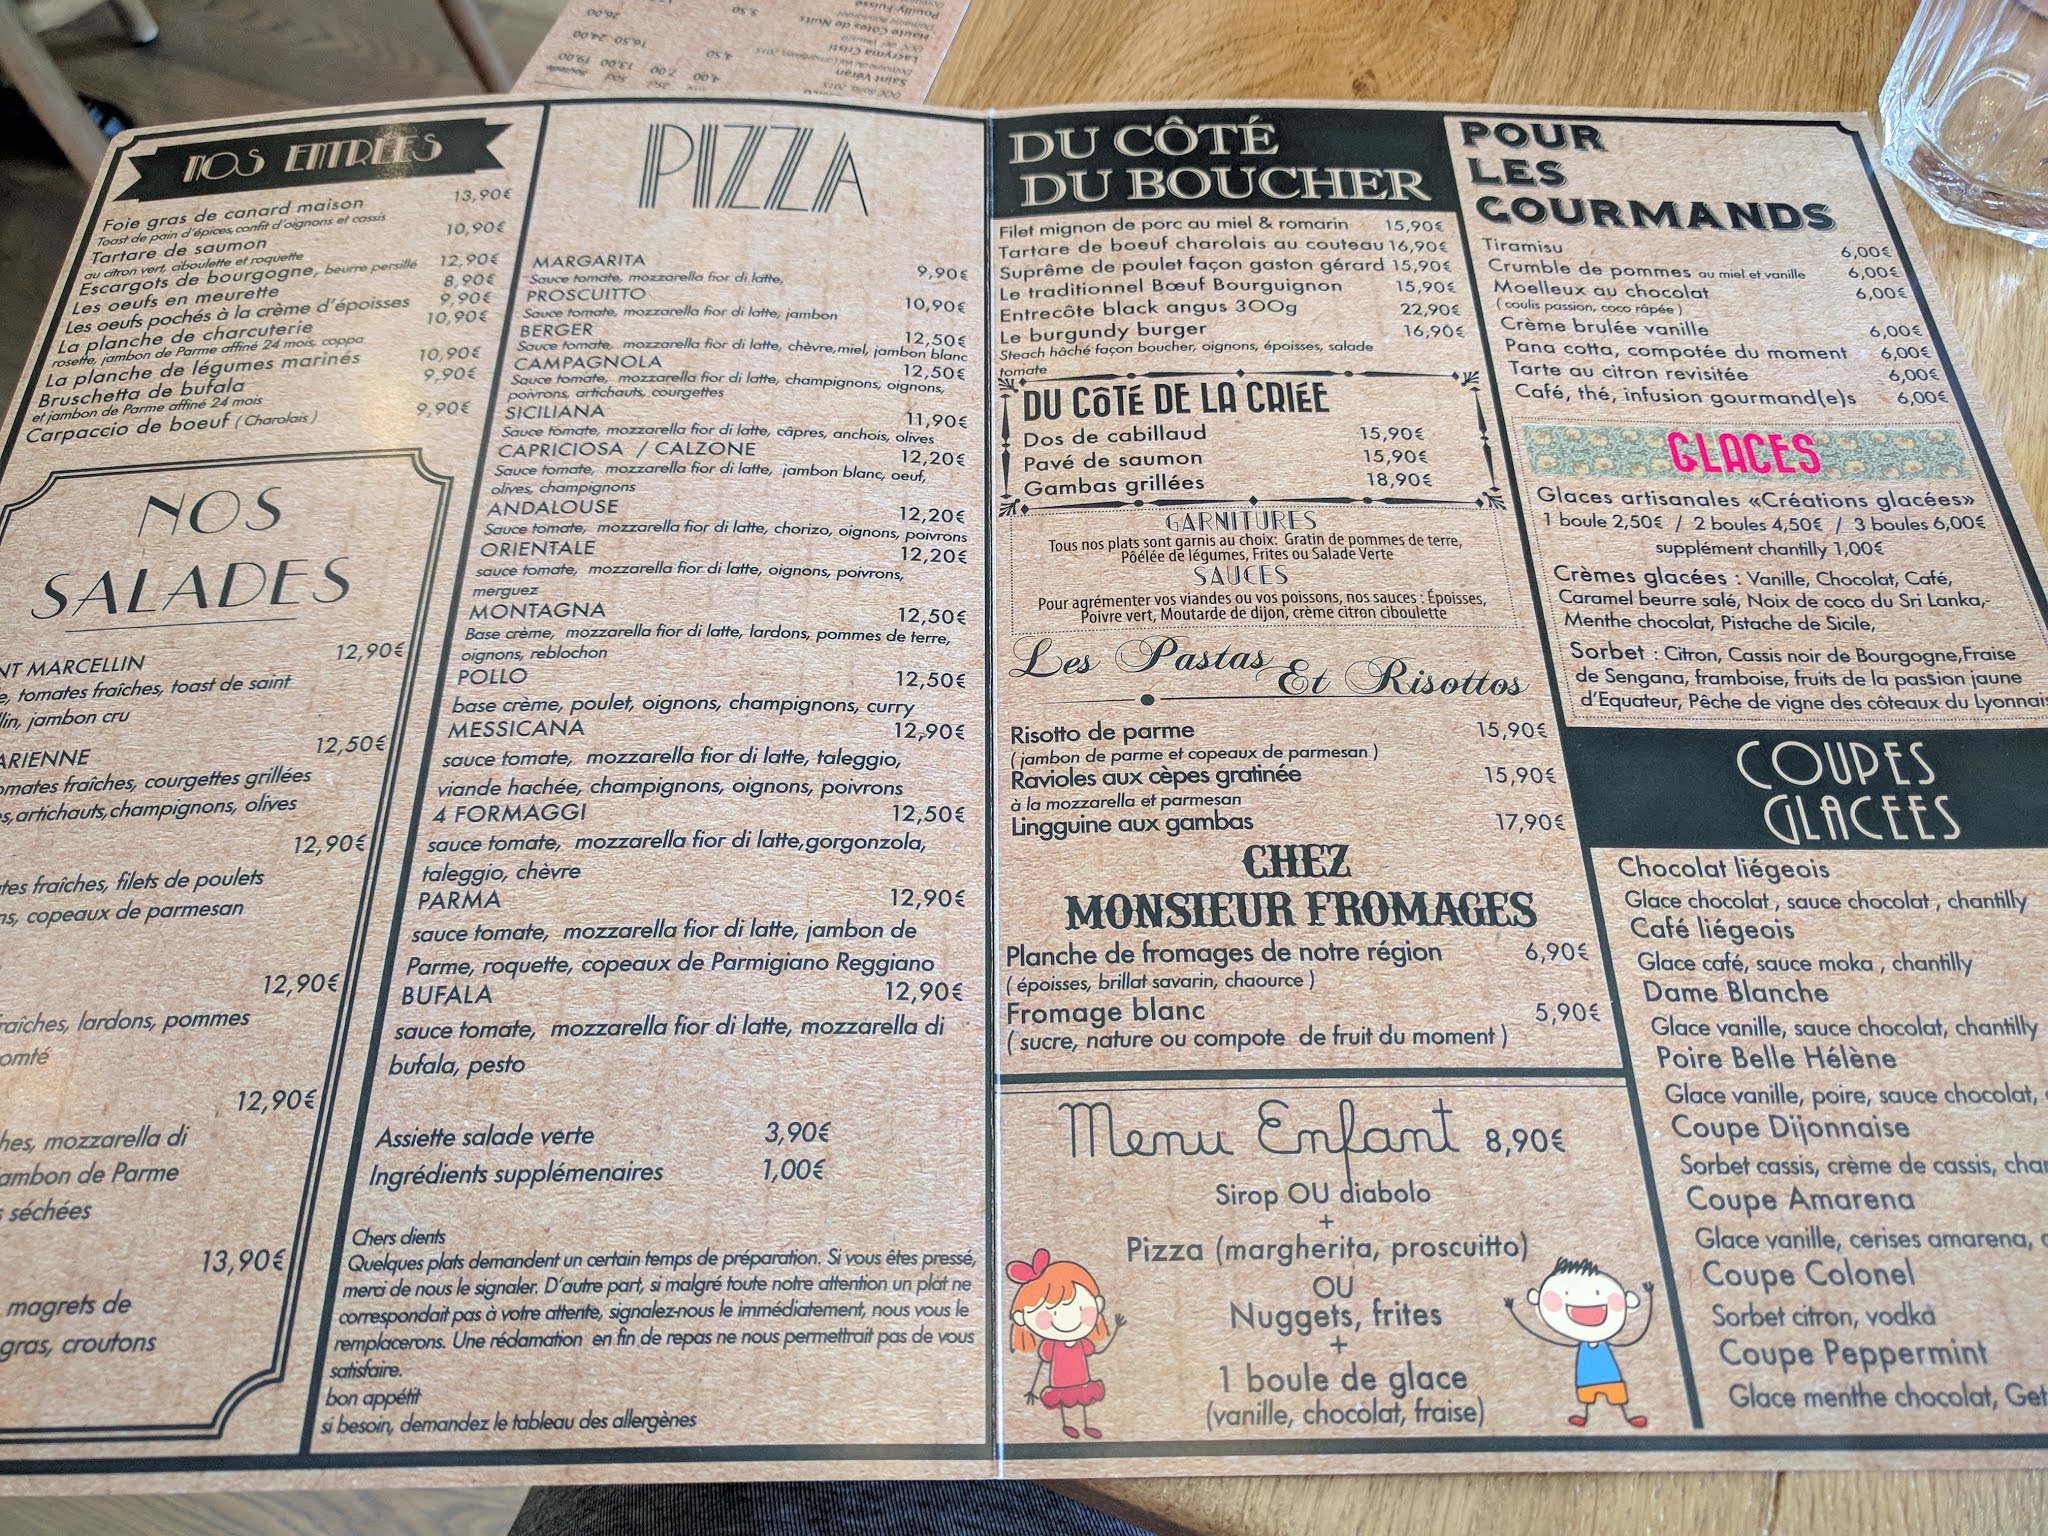 Pouilly-Fuissé
5.50
Haute Côtes de Nuits
26.00
Lacryma Cristi
4,50
16.50 24.00
Saint Véran
4,00
7,00
13.00 19.00
NOS ENTRÉES
Foie gras de canard maison 13,90€
Toast de pain d'épices, confit d'oignons et cassis
Tartare de saumon 10,90€
au citron vert, ciboulette et roquette
Escargots de bourgogne, beurre persillé 12,90€
Les oeufs en meurette 8,90€
Les oeufs pochés à la crème d'époisses 9,90€
La planche de charcuterie 10,90€
rosette, jambon de Parme affiné 24 mois, coppa
La planche de légumes marinés 10,90€
Bruschetta de bufala 9,90€
et jambon de Parme affiné 24 mois
Carpaccio de boeuf ( Charolais ) 9,90€
NOS
SALADES
NT MARCELLIN 12,90€
e, tomates fraîches, toast de saint
lin, jambon cru
ARIENNE 12,50€
omates fraîches, courgettes grillées
s, artichauts, champignons, olives
12,90€
tes fraîches, filets de poulets
ns, copeaux de parmesan
12,90€
raîches, lardons, pommes
omté
12,90€
hes, mozzarella di
ambon de Parme
s séchées
13,90€
magrets de
gras, croutons
PIZZA
MARGARITA 9,90€
Sauce tomate, mozzarella fior di latte,
PROSCUITTO 10,90€
Sauce tomate, mozzarella fior di latte, jambon
BERGER 12,50€
Sauce tomate, mozzarella fior di latte, chèvre, miel, jambon blanc
CAMPAGNOLA 12,50€
Sauce tomate, mozzarella fior di latte, champignons, oignons,
poivrons, artichauts, courgettes
SICILIANA 11,90€
Sauce tomate, mozzarella fior di latte, câpres, anchois, olives
CAPRICIOSA / CALZONE 12,20€
Sauce tomate, mozzarella fior di latte, jambon blanc, oeuf,
olives, champignons
ANDALOUSE 12,20€
Sauce tomate, mozzarella fior di latte, chorizo, oignons, poivrons
ORIENTALE 12,20€
sauce tomate, mozzarella fior di latte, oignons, poivrons,
merguez
MONTAGNA 12,50€
Base crème, mozzarella fior di latte, lardons, pommes de terre,
oignons, reblochon
POLLO 12,50€
base crème, poulet, oignons, champignons, curry
MESSICANA 12,90€
sauce tomate, mozzarella fior di latte, taleggio,
viande hachée, champignons, oignons, poivrons
4 FORMAGGI 12,50€
sauce tomate, mozzarella fior di latte,gorgonzola,
taleggio, chèvre
PARMA 12,90€
sauce tomate, mozzarella fior di latte, jambon de
Parme, roquette, copeaux de Parmigiano Reggiano
BUFALA 12,90€
sauce tomate, mozzarella fior di latte, mozzarella di
bufala, pesto
Assiette salade verte 3,90€
Ingrédients supplémenaires 1,00€
Chers clients
Quelques plats demandent un certain temps de préparation. Si vous êtes pressé,
merci de nous le signaler. D'autre part, si malgré toute notre attention un plat ne
correspondait pas à votre attente, signalez-nous le immédiatement, nous vous le
remplacerons. Une réclamation en fin de repas ne nous permettrait pas de vous
satisfaire.
bon appétit
si besoin, demandez le tableau des allergènes
DU CÔTÉ
DU BOUCHER
Filet mignon de porc au miel & romarin 15,90€
Tartare de boeuf charolais au couteau 16,90€
Suprême de poulet façon gaston gérard 15,90€
Le traditionnel Bœuf Bourguignon 15,90€
Entrecôte black angus 300g 22,90€
Le burgundy burger 16,90€
Steach hâché façon boucher, oignons, époisses, salade
tomate
DU CÔTÉ DE LA CRIÉE
Dos de cabillaud 15,90€
Pavé de saumon 15,90€
Gambas grillées 18,90€
GARNITURES
Tous nos plats sont garnis au choix: Gratin de pommes de terre,
Pôélée de légumes, Frites ou Salade Verte
SAUCES
Pour agrémenter vos viandes ou vos poissons, nos sauces : Époisses,
Poivre vert, Moutarde de dijon, crème citron ciboulette
Les Pastas
Et Risottos
Risotto de parme 15,90€
( jambon de parme et copeaux de parmesan )
Ravioles aux cèpes gratinée 15,90€
à la mozzarella et parmesan
Lingguine aux gambas 17,90€
CHEZ
MONSIEUR FROMAGES
Planche de fromages de notre région 6,90€
( époisses, brillat savarin, chaource )
Fromage blanc 5,90€
( sucre, nature ou compote de fruit du moment )
Menu Enfant 8,90€
Sirop OU diabolo
+
Pizza (margherita, proscuitto)
OU
Nuggets, frites
+
1 boule de glace
(vanille, chocolat, fraise)
POUR
LES
GOURMANDS
Tiramisu 6,00€
Crumble de pommes au miel et vanille 6,00€
Moelleux au chocolat 6,00€
( coulis passion, coco râpée )
Crème brulée vanille 6,00€
Pana cotta, compotée du moment 6,00€
Tarte au citron revisitée 6,00€
Café, thé, infusion gourmand(e)s 6,00€
GLACES
Glaces artisanales «Créations glacées»
1 boule 2,50€ / 2 boules 4,50€ / 3 boules 6,00€
supplément chantilly 1,00€
Crèmes glacées : Vanille, Chocolat, Café,
Caramel beurre salé, Noix de coco du Sri Lanka,-
Menthe chocolat, Pistache de Sicile,
Sorbet : Citron, Cassis noir de Bourgogne,Fraise
de Sengana, framboise, fruits de la passion jaune
d'Equateur, Pêche de vigne des côteaux du Lyonnais
COUPES
GLACEES
Chocolat liégeois
Glace chocolat , sauce chocolat , chantilly
Café liégeois
Glace café, sauce moka , chantilly
Dame Blanche
Glace vanille, sauce chocolat, chantilly
Poire Belle Hélène
Glace vanille, poire, sauce chocolat,
Coupe Dijonnaise
Sorbet cassis, crème de cassis, chan
Coupe Amarena
Glace vanille, cerises amarena,
Coupe Colonel
Sorbet citron, vodka
Coupe Peppermint
Glace menthe chocolat, Get